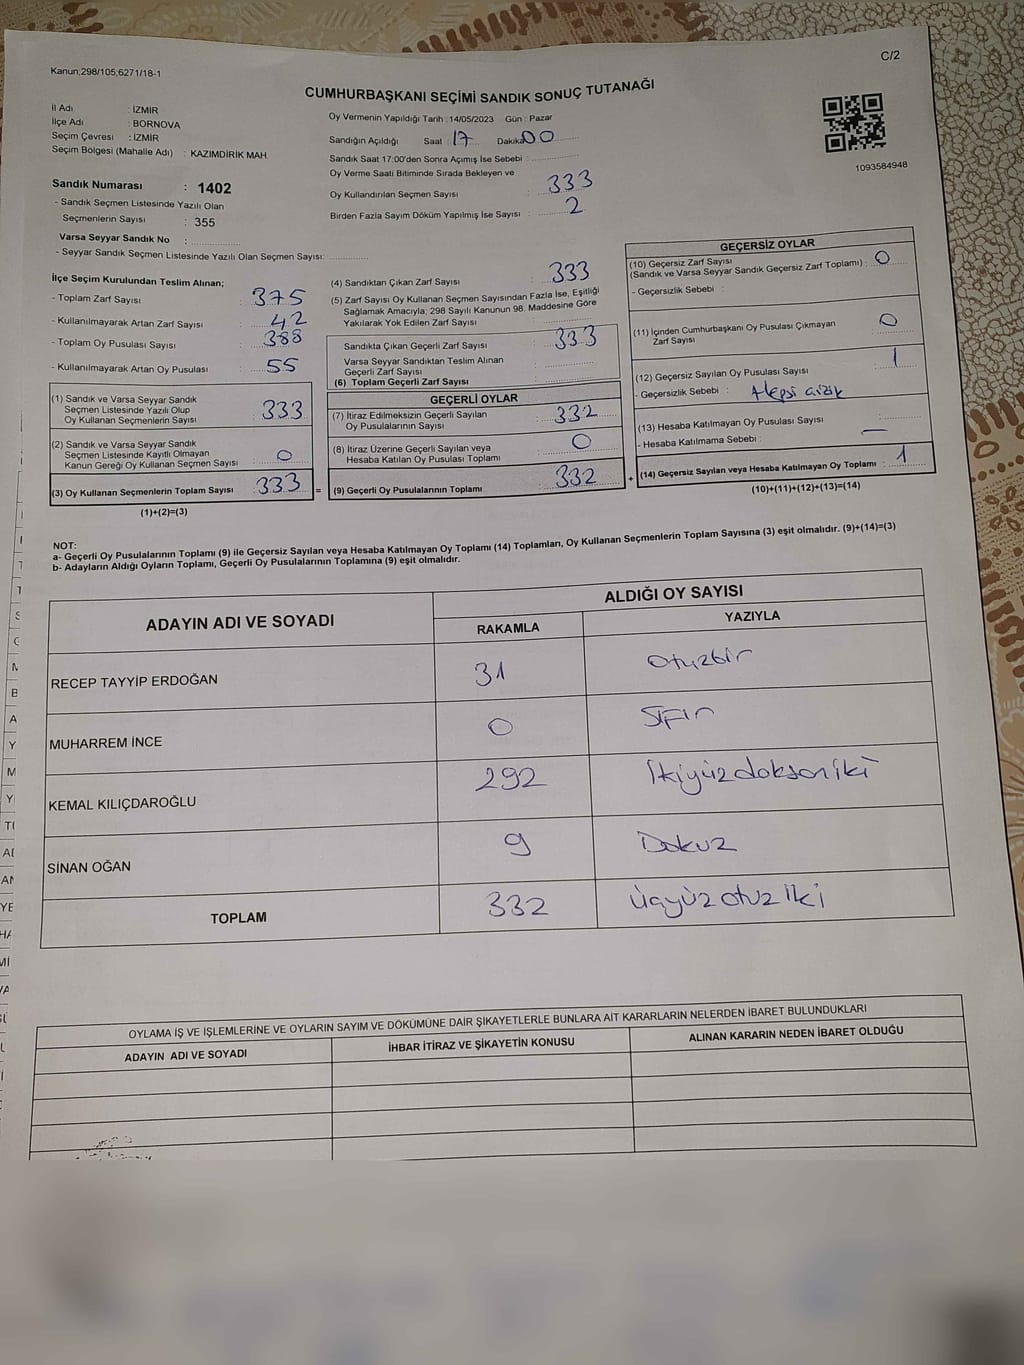 C/2
Kanun;298/105;6271/18-1
CUMHURBAŞKANI SEÇİMİ SANDIK SONUÇ TUTANAĞI
İl Adı : İZMİR
İlçe Adı : BORNOVA
Seçim Çevresi : İZMİR
Seçim Bölgesi (Mahalle Adı) : KAZIMDİRİK MAH.
Sandık Numarası : 1402
- Sandık Seçmen Listesinde Yazılı Olan
Seçmenlerin Sayısı : 355
Varsa Seyyar Sandık No :
- Seyyar Sandık Seçmen Listesinde Yazılı Olan Seçmen Sayısı:
Oy Vermenin Yapıldığı Tarih : 14/05/2023 Gün : Pazar
Sandığın Açıldığı Saat : 17 Dakika 00
Sandık Saat 17:00'den Sonra Açımış İse Sebebi :
Oy Verme Saati Bitiminde Sırada Bekleyen ve
Oy Kullandırılan Seçmen Sayısı : 333
Birden Fazla Sayım Döküm Yapılmış İse Sayısı : 2
1093584948
İlçe Seçim Kurulundan Teslim Alınan;
- Toplam Zarf Sayısı : 375
- Kullanılmayarak Artan Zarf Sayısı : 42
- Toplam Oy Pusulası Sayısı : 388
- Kullanılmayarak Artan Oy Pusulası : 55
(1) Sandık ve Varsa Seyyar Sandık
Seçmen Listesinde Yazılı Olup
Oy Kullanan Seçmenlerin Sayısı : 333
(2) Sandık ve Varsa Seyyar Sandık
Seçmen Listesinde Kayıtlı Olmayan
Kanun Gereği Oy Kullanan Seçmen Sayısı : 0
(3) Oy Kullanan Seçmenlerin Toplam Sayısı : 333 =
(1)+(2)=(3)
(4) Sandıktan Çıkan Zarf Sayısı : 333
(5) Zarf Sayısı Oy Kullanan Seçmen Sayısından Fazla İse, Eşitliği
Sağlamak Amacıyla; 298 Sayılı Kanunun 98. Maddesine Göre
Yakılarak Yok Edilen Zarf Sayısı :
Sandıkta Çıkan Geçerli Zarf Sayısı : 333
Varsa Seyyar Sandıktan Teslim Alınan
Geçerli Zarf Sayısı :
(6) Toplam Geçerli Zarf Sayısı :
GEÇERLİ OYLAR
(7) İtiraz Edilmeksizin Geçerli Sayılan
Oy Pusulalarının Sayısı : 332
(8) İtiraz Üzerine Geçerli Sayılan veya
Hesaba Katılan Oy Pusulası Toplamı : 0
(9) Geçerli Oy Pusulalarının Toplamı : 332 +
GEÇERSİZ OYLAR
(10) Geçersiz Zarf Sayısı
(Sandık ve Varsa Seyyar Sandık Geçersiz Zarf Toplamı) : 0
- Geçersizlik Sebebi :
(11) İçinden Cumhurbaşkanı Oy Pusulası Çıkmayan
Zarf Sayısı : 0
(12) Geçersiz Sayılan Oy Pusulası Sayısı : 1
- Geçersizlik Sebebi :
(13) Hesaba Katılmayan Oy Pusulası Sayısı : —
- Hesaba Katılmama Sebebi :
(14) Geçersiz Sayılan veya Hesaba Katılmayan Oy Toplamı : 1
(10)+(11)+(12)+(13)=(14)
NOT:
a- Geçerli Oy Pusulalarının Toplamı (9) ile Geçersiz Sayılan veya Hesaba Katılmayan Oy Toplamı (14) Toplamları, Oy Kullanan Seçmenlerin Toplam Sayısına (3) eşit olmalıdır. (9)+(14)=(3)
b- Adayların Aldığı Oyların Toplamı, Geçerli Oy Pusulalarının Toplamına (9) eşit olmalıdır.
ADAYIN ADI VE SOYADI ALDIĞI OY SAYISI
RAKAMLA YAZIYLA
RECEP TAYYİP ERDOĞAN 31 Otuzbir
MUHARREM İNCE 0 Sıfır
KEMAL KILIÇDAROĞLU 292 İkiyüzdoksaniki
SİNAN OĞAN 9 Dokuz
TOPLAM 332 Üçyüzotuziki
OYLAMA İŞ VE İŞLEMLERİNE VE OYLARIN SAYIM VE DÖKÜMÜNE DAİR ŞİKAYETLERLE BUNLARA AİT KARARLARIN NELERDEN İBARET BULUNDUKLARI
ADAYIN ADI VE SOYADI İHBAR İTİRAZ VE ŞİKAYETİN KONUSU ALINAN KARARIN NEDEN İBARET OLDUĞU